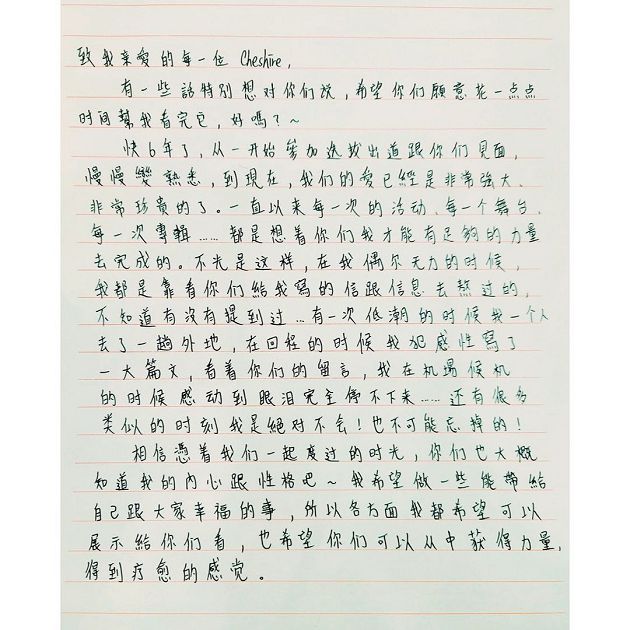 致我亲愛的每一位 Cheshire,
有一些話特別想对你们說，希望你们願意花一点点
时间幫我看完它，好嗎？~
快6年了，从一开始參加选拔出道跟你们見面，
慢慢變熟悉，到現在，我们的爱已經是非常強大、
非常珍貴的了。一直以来每一次的活动、每一个舞台、
每一次專輯……都是想着你们我才能有足夠的力量
去完成的。不光是这样，在我偶尔无力的时候，
我都是靠着你们給我寫的信跟信息去熬过的，
不知道有沒有提到过…有一次低潮的时候我一个人
去了一趟外地，在回程的时候我犯感性寫了
一大篇文，看着你们的留言，我在机場候机
的时候感动到眼泪完全停不下来……还有很多
类似的时刻我是絕对不会！也不可能忘掉的！
相信憑着我们一起度过的时光，你们也大概
知道我的内心跟性格吧~我希望做一些能帶給
自己跟大家幸福的事，所以各方面我都希望可以
展示給你们看，也希望你们可以从中获得力量，
得到疗愈的感觉。